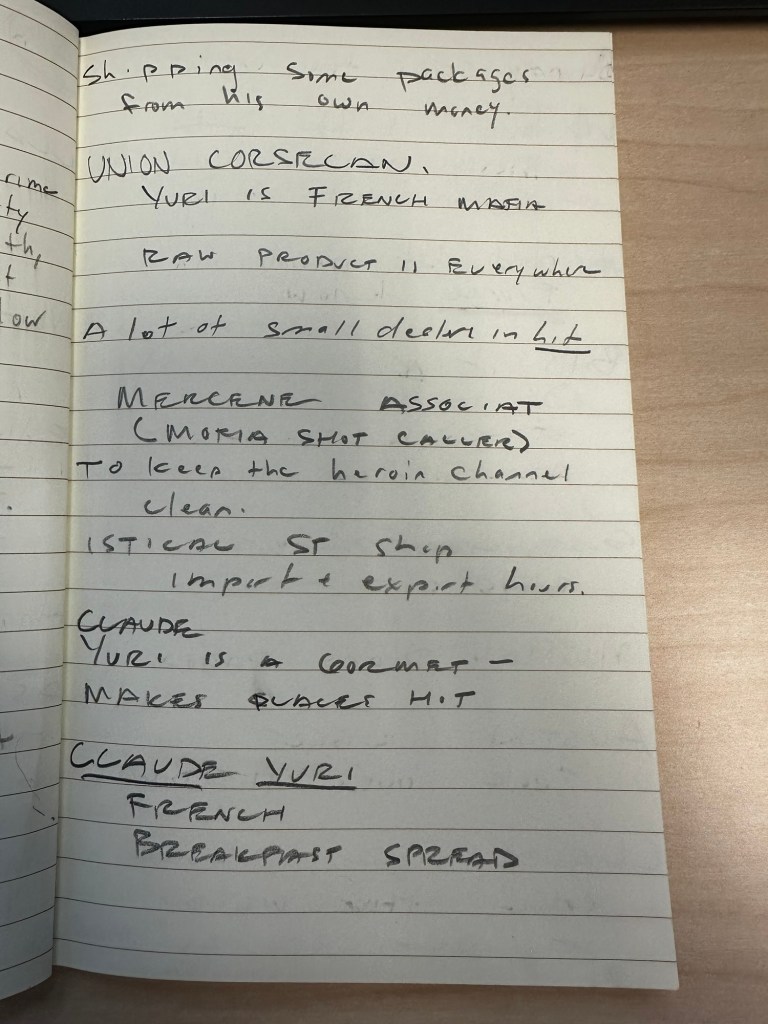 rime
ty
th,
t
low
Shipping some packages
from his own money.
UNION CORSECAN.
YURI IS FRENCH MAFIA
RAW PRODUCT IS Everywhere
A lot of small dealers in hit
MERCENE ASSOCIAT
(MORIA SHOT CALLER)
TO keep the heroin channel
clean.
ISTICAL ST shop
import + export hours.
CLAUDE
YURI IS A GORMET –
MAKES PLACES HOT
CLAUDE YURI
FRENCH
BREAKFAST SPREAD